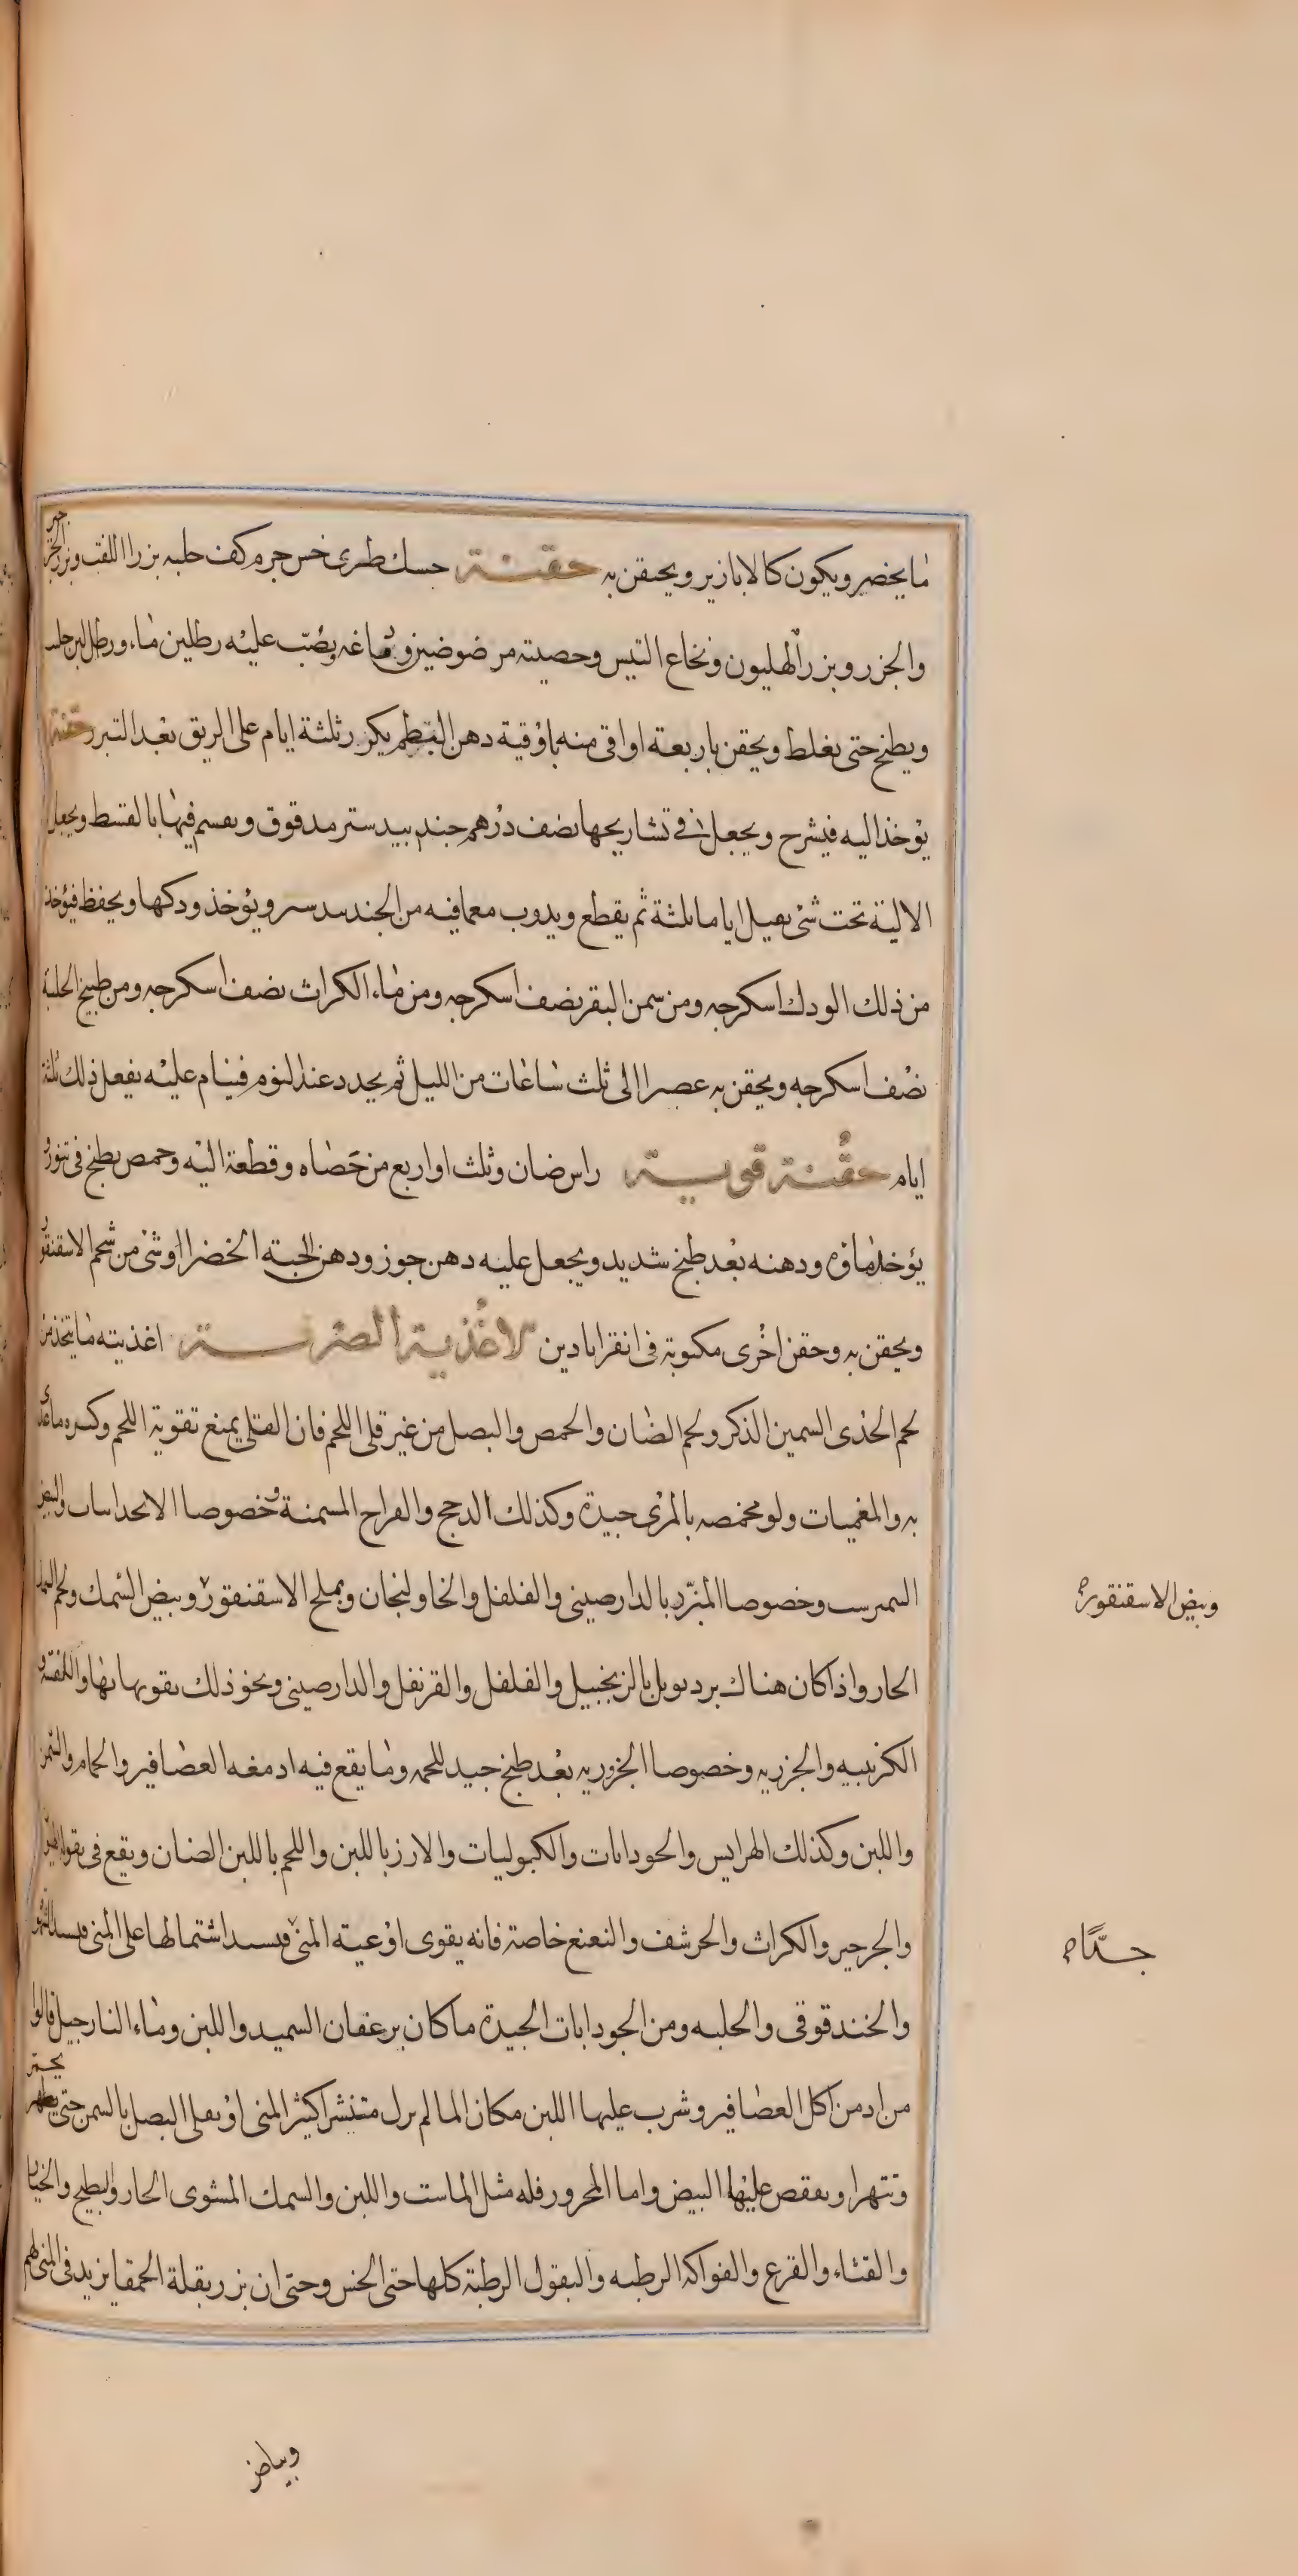 ما يخضر ويكون كالابازير ويحتقن به حقنة حسك طرى خمس جرم كف حلبه بزر اللفت وبزر الجزر
والجزر وبزر الهليون ونخاع التيس وخصيته مرضوضين ودماغه ويصب عليه رطلين ماء ورطل لبن حليب
ويطبخ حتى يغلظ ويحقن باربعة اواقى منه باوقية دهن البطم يكرر ثلثة ايام على الريق بعد التبرز حقنة
يؤخذ اليه فيشرح ويجعل فى تشاريحها نصف درهم جندبيدستر مدقوق ويقسم فيها بالقسط ويجعل
الالية تحت شئ ثقيل اياما ثلثة ثم يقطع ويذوب معما فيه من الجندبيدستر ويؤخذ ودكها ويحفظ فيؤخذ
من ذلك الودك اسكرجه ومن سمن البقر نصف اسكرجه ومن ماء الكراث نصف اسكرجه ومن طبيخ الحلبة
نصف اسكرجه ويحقن به عصرا الى ثلث ساعات من الليل ثم يجدد عند النوم فينام عليه يفعل ذلك ثلثة
ايام حقنة قوية راس ضان وثلث او اربع من خصاه وقطعة اليه وحمص يطبخ فى تنور
يؤخذ ماؤه ودهنه بعد طبخ شديد ويجعل عليه دهن جوز ودهن الحبة الخضرا او شئ من شحم الاسقنقور
ويحقن به وحقن اخرى مكتوبة فى انقراباذين الاغذية الصرفة اغذيته ما يتخذ من
لحم الجدى السمين الذكر ولحم الضان والحمص والبصل من غير قلى اللحم فان القلى يمنع تقوية اللحم وكثره ما غذى
به والمغميات ولو محمصه بالمرى جيدة وكذلك الدجج والفراخ المسمنة وخصوصا والبيض
النمبرشت وخصوصا المبزر بالدارصينى والفلفل والخاولنجان وبملح الاسقنقور وبيض السمك ولحم السمك
وبيض الاسقنقور
الحار واذا كان هناك برد توبل بالزنجبيل والفلفل والقرنفل والدارصينى ونحو ذلك بقوبها بها واللفتيه و
الكرنبيه والجزريه وخصوصا الجزوريه بعد طبخ جيد للحمه وما يقع فيه ادمغه العصافير والحمام والسمن
واللبن وكذلك الهرايس والجوذابات والكبوليات والارز باللبن واللحم باللبن الضان ويقع فى بقوله الهليون
والجرجير والكراث والحرشف والنعنع خاصة فانه يقوى اوعية المنى فيشتد اشتمالها على المنى فيشتد الشهوة
جدّا
والحندقوقى والحلبه ومن الجوذابات الجيدة ما كان بزعفران السميد واللبن وماء النارجيل قالوا
من ادمن اكل العصافير وشرب عليها اللبن مكان الما لم يزل منتشرا كثير المنى او يقلى البصل بالسمن حتى يحمر
وتتهرا ويفقص عليها البيض واما المحرور فله مثل الماست واللبن والسمك المشوى الحار والبطيخ والخيار
والقثاء والقرع والفواكه الرطبه والبقول الرطبة كلها حتى الخس وحتى ان بزر بقلة الحمقا يزيد فى المنى لهم
وبياض